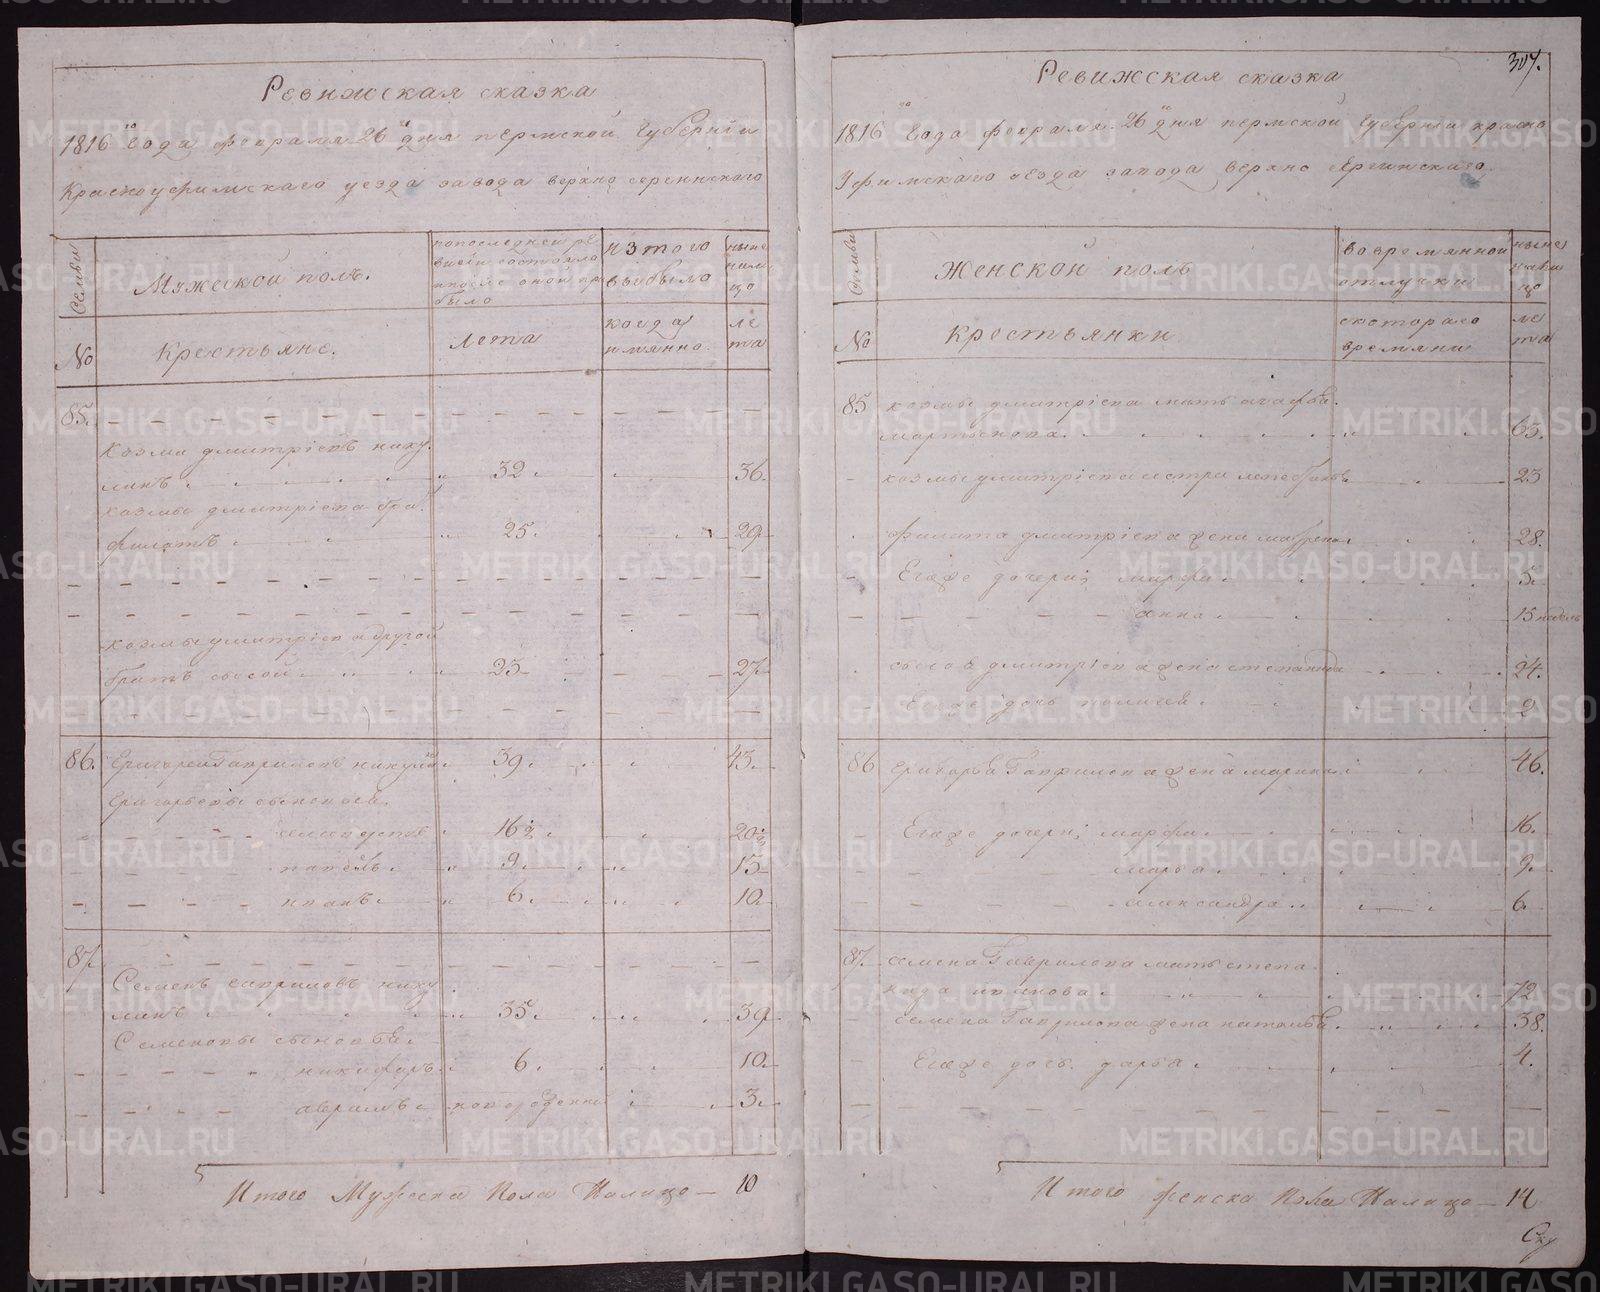 Ревижская сказка
1816 го года февраля 26 дня пермской губернии
Красноуфимскаго уезда завода верхно сергинскаго
Семьи
Мужеской полъ.
попоследней ре
визіи состояло
ипосле оной при
было
изтого
выбыло
ныне
нали
цо
No
Крестьяне.
Лета
когда
имянно.
ле
та
85.
козма дмитріевъ нику
линъ 32. 36.
козмы дмитріева бра.
филатъ 25. 29
козмы дмитріева другой
братъ сысой 23 27
86. Григорей Гавриловъ никули 39. 43.
Григорьевы сыновья.
16½ 20½
павелъ 9. 13
иванъ 6. 10
87.
Семенъ гавриловъ нику
линъ 35. 39
Семеновы сыновья.
никифоръ 6. 10
аврамъ новорожденной 3.
Итого Мужеска Пола Налицо — 10
307.
Ревижская сказка
1816 го Года февраля 26 дня пермской Губерніи красно
Уфимскаго уезда завода верхно сергинскаго.
Семьи
Женской полъ
вовремянной
отлучки
ныне
нали
цо
No
Крестьянки
скотораго
времяни
ле
та
85 козмы дмитріева мать агафья
мартынова. 63.
козмы дмитріева сестра 23
филата дмитріева жена мавра 28.
Егоже дочери, марфа 5.
анна 15 недель
сысоя дмитріева жена степанида 24.
Егоже дочь 2
86 Григорья Гаврилова жена марина 46.
Егоже дочери; марфа 16.
марья 9.
александра 6.
87. семена Гаврилова мать степа
нида иванова 72
семена Гаврилова жена наталья 38.
Егоже дочь дарья 4.
Итого женска Пола Налицо — 14
METRIKI.GASO-URAL.RU